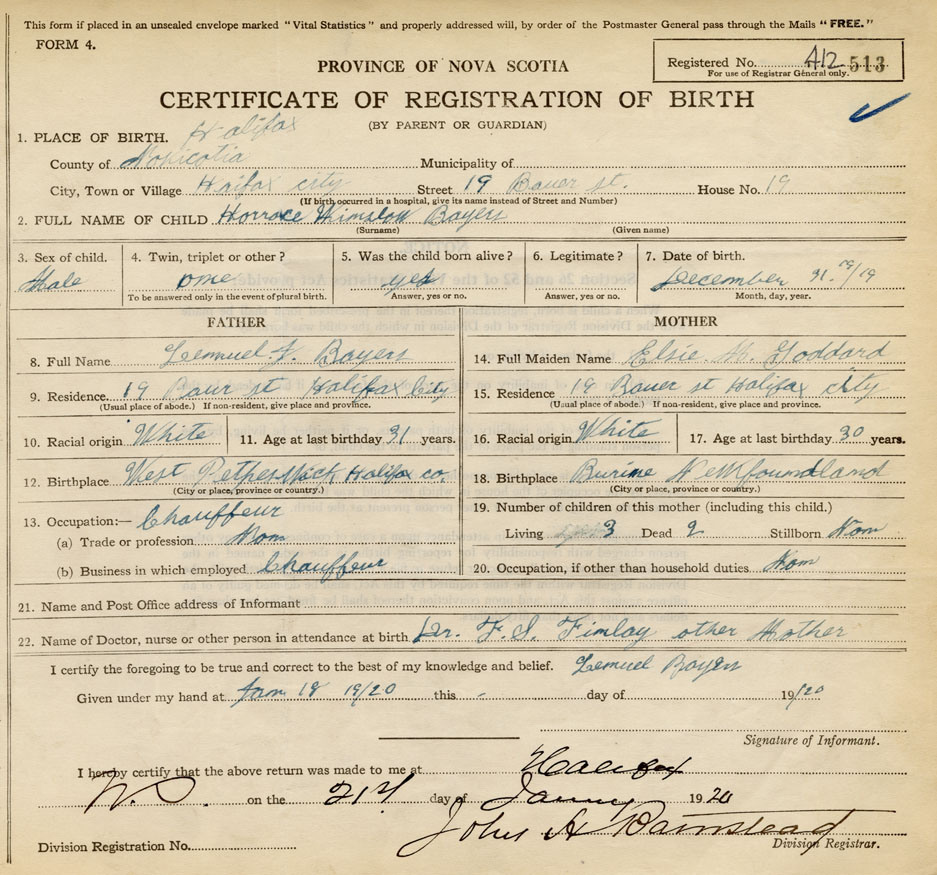 This form if placed in an unsealed envelope marked "Vital Statistics" and properly addressed will, by order of the Postmaster General pass through the Mails "FREE."
FORM 4.
Registered No. A12 513
For use of Registrar General only.
PROVINCE OF NOVA SCOTIA
CERTIFICATE OF REGISTRATION OF BIRTH
(BY PARENT OR GUARDIAN)
1. PLACE OF BIRTH. Halifax
County of Municipality of
City, Town or Village Halifax city Street 19 Bauer st. House No. 19
(If birth occurred in a hospital, give its name instead of Street and Number)
2. FULL NAME OF CHILD Horrace Winslow Boyers
(Surname) (Given name)
3. Sex of child. 4. Twin, triplet or other? 5. Was the child born alive? 6. Legitimate? 7. Date of birth.
Male one yes December 31. 19/19
To be answered only in the event of plural birth. Answer, yes or no. Answer, yes or no. Month, day, year.
FATHER
8. Full Name Lemuel F. Boyers
9. Residence. 19 Baur st Halifax City
(Usual place of abode.) If non-resident, give place and province.
10. Racial origin White 11. Age at last birthday 31 years.
12. Birthplace West Halifax co.
(City or place, province or country.)
13. Occupation:— Chauffeur
(a) Trade or profession Non
(b) Business in which employed Chauffeur
MOTHER
14. Full Maiden Name Elsie M. Goddard
15. Residence 19 Bauer st Halifax city
(Usual place of abode.) If non-resident, give place and province.
16. Racial origin White 17. Age at last birthday 30 years.
18. Birthplace Burine Newfoundland
(City or place, province or country.)
19. Number of children of this mother (including this child.)
Living 3 Dead 2 Stillborn Non
20. Occupation, if other than household duties. Non
21. Name and Post Office address of Informant
22. Name of Doctor, nurse or other person in attendance at birth. Dr. F. S. Finlay other Mother
I certify the foregoing to be true and correct to the best of my knowledge and belief. Lemuel Boyers
Given under my hand at Jan 18 19/20 this - day of 19/20
Signature of Informant.
I hereby certify that the above return was made to me at Halifax
N.S. on the 21st day of Janny 1920
John A Barnstead
Division Registration No. Division Registrar.